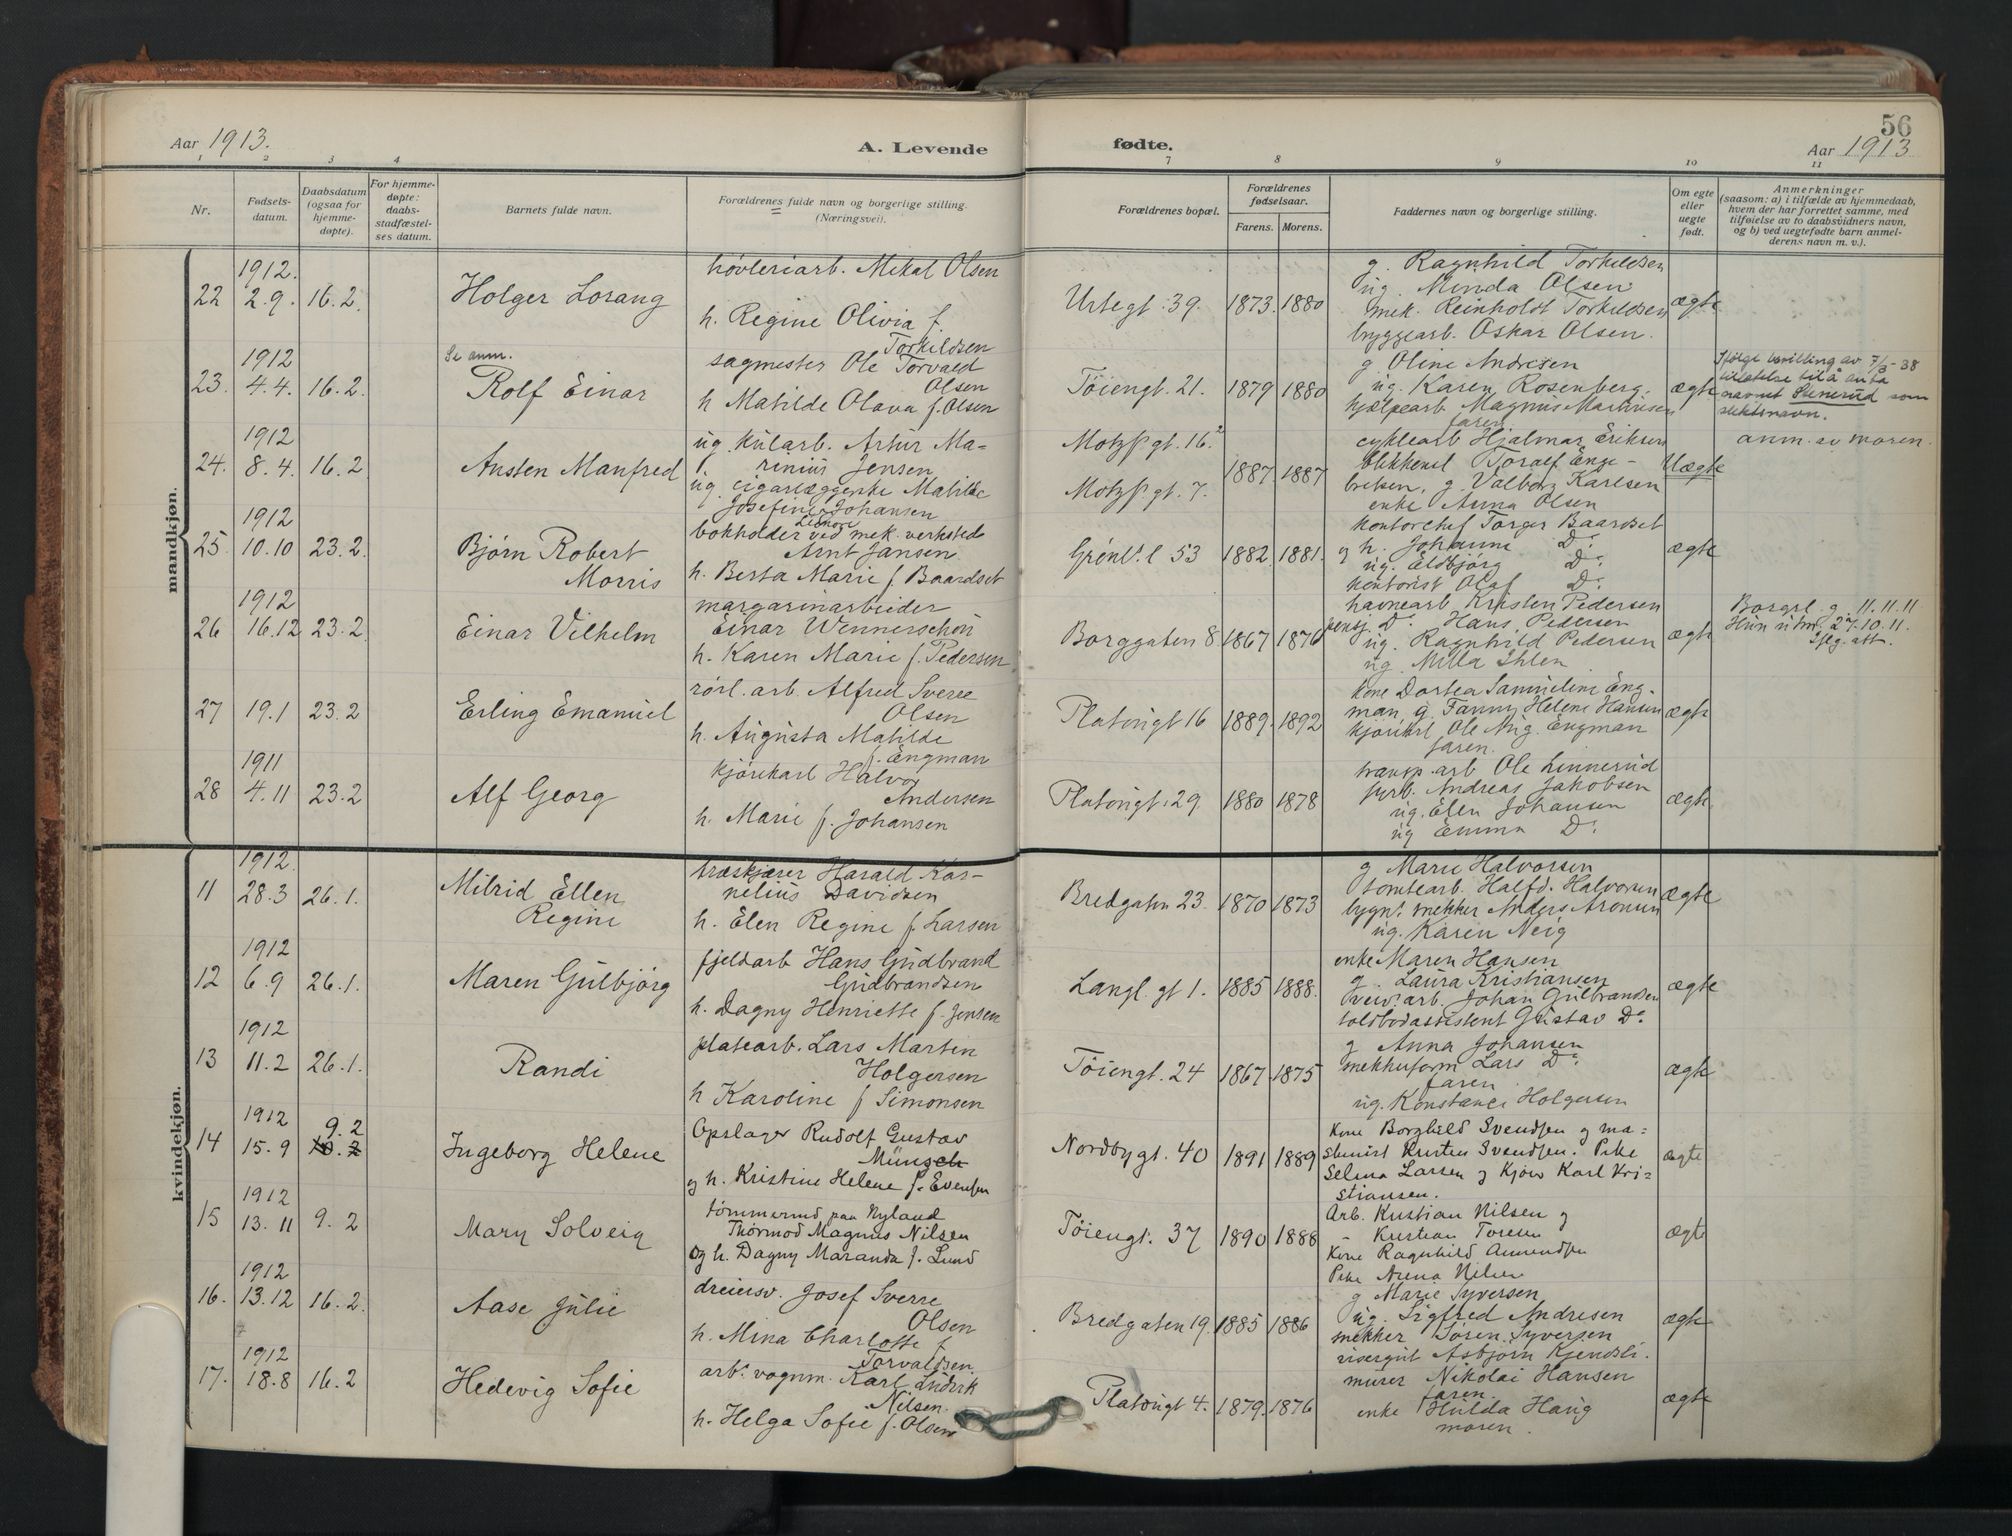 56
Aar 1913.
A. Levende
fødte.
Aar 1913
1 2 3 4 7 8 9 10 11
Nr.
Fødsels-
datum.
Daabsdatum
(ogsaa for
hjemme-
døpte).
For hjemme-
døpte:
daabs-
stadfæstel-
ses datum.
Barnets fulde navn.
Forældrenes fulde navn og borgerlige stilling.
(Næringsvei).
Forældrenes bopæl.
Forældrenes
fødselsaar.
Farens. Morens.
Faddernes navn og borgerlige stilling.
Om egte
eller
uegte
født.
Anmerkninger
(saasom: a) i tilfælde av hjemmedaab,
hvem der har forrettet samme, med
tilføielse av to daabsvidners navn,
og b) ved uegtefødte barn anmel-
derens navn m. v.).
mandkjøn.
1912.
22 2.9. 16.2.
Holger Lorang
høvleriarb. Mikal Olsen
h. Regine Olivia f.
Torkildsen
Urtegt. 39. 1873. 1880
g. Ragnhild Torkildsen
ug. Minda Olsen
mek. Reinholdt Torkildsen
byggearb. Oskar Olsen.
ægte
1912
23. 4.4. 16.2.
Se anm.
Rolf Einar
sagmester Ole Torvald
Olsen
h Matilde Olava f. Olsen
Tøiengt. 21. 1879 1880
g Oline Andresen
ug. Karen Rosenberg.
hjælpearb Magnus Martinsen
faren
ægte
Ifølge bevilling av 7/3-38
tillatelse til å anta
navnet Stenerud som
slektsnavn.
1912
24. 8.4. 16.2
Austen Manfred
ug kularb. Artur Ma-
rinius Jensen
ug. cigarlæggerske Matilde
Josefine Johansen
Leonore
Motzf gt. 16.2
Motzf gt. 7.
1887. 1887
cyklearb Hjalmar Eriksen
blikkensl Toralf Enge-
bretsen, g. Valborg Karlsen
enke Anna Olsen
Uægte
anm. av moren.
1912
25. 10.10 23.2.
Bjørn Robert
Morris
bokholder ved mek. verksted
Arnt Jansen
h. Berta Marie f. Baardset
Grønl. l 53 1882. 1881.
kontorchef Torger Baardset
og h. Johanne Do
ug. Eldbjørg Do
kontorist Olaf Do
ægte
1912
26 16.12 23.2.
Einar Vilhelm
margarinarbeider
Einar Wennerschou
h. Karen Marie f. Pedersen
Borggaten 8. 1867 1876
havnearb Kristen Pedersen
pensj. Do Hans Pedersen
ug. Ragnhild Pedersen
ug. Milla Ihlen
ægte
Borgrl. g. 11.11.11
Hun utm. 27.10.11.
iflg. att.
27 19.1 23.2
Erling Emanuel
rørl. arb. Alfred Sverre
Olsen
h. Augusta Matilde
f. Engman
Platøugt 16 1889. 1892
kone Dortea Samueline Eng-
man g. Fanny Helene Hansen
kjørekarl Ole Aug. Engman
faren.
ægte
1911
28 4.11 23.2
Alf Georg
kjørekarl Halvor
Andersen
h. Marie f. Johansen
Platøugt. 29 1880 1878
transp. arb Ole Linnerud
fyrb. Andreas Jakobsen
ug. Elen Johansen
ug Emma Do
ægte
kvindekjøn.
1912.
11 28.3 26.1.
Milrid Ellen
Regine
træskjærer Harald Kor-
nelius Davidsen
h. Elen Regine f. Larsen
Bredgaten 23 1870 1873
g Marie Halvorsen
tomtearb. Halfd. Halvorsen
bygn. snekker Anders Aronsen
ug. Karen Neig
ægte
1912
12 6.9 26.1.
Maren Gulbjørg
fjeldarb Hans Gudbrand
Gudbrandsen
h. Dagny Henriette f. Jensen
Langl. gt 1. 1885 1888.
enke Maren Hansen
g. Laura Kristiansen
veiv. arb. Johan Gulbrandsen
toldbodassistent Gustav Do
ægte
1912
13 11.2 26.1.
Randi
platearb. Lars Martin
Holgersen
h Karoline f Simonsen
Tøiengt. 24 1867 1875
g Anna Johansen
snekkerform Lars Do
faren
ug. Konstance Holgersen
ægte
1912 9.2
14 15.9 10.2
Ingeborg Helene
Opslager Rudolf Gustav
Münsch
og h. Kristine Helene f. Evensen
Nordbygt. 40 1891 1889
Kone Borghild Svendsen og ma=
skinist Kristen Svendsen. Pike
Selma Larsen og Kjører Karl Kri=
stiansen.
ægte
1912
15 13.11 9.2
Mary Solveig
tømmermand paa Nyland
Thormod Magnus Nilsen
og h. Dagny Maranda f. Lund
Tøiengt. 37 1890 1888
Arb. Kristian Nilsen og
– Kristian Toresen
Kone Ragnhild Amundsen
Pike Anna Nilsen
ægte
1912
16. 13.12 16.2.
Aase Julie
dreiersv. Josef Sverre
Olsen
h. Mina Charlotte f
Torvaldsen
Bredgaten 19. 1885 1886
g Marie Syversen
ug. Sigfred Andresen
snekker Søren Syversen
visergut Asbjørn Kjendsli.
ægte
1912
17. 18.8 16.2
Hedevig Sofie
arb. vognm. Karl Ludvik
Nilsen.
h. Helga Sofie f. Olsen
Platøugt 4. 1879. 1876
murer Nikolai Hansen
faren.
enke Hulda Haug
moren.
ægte